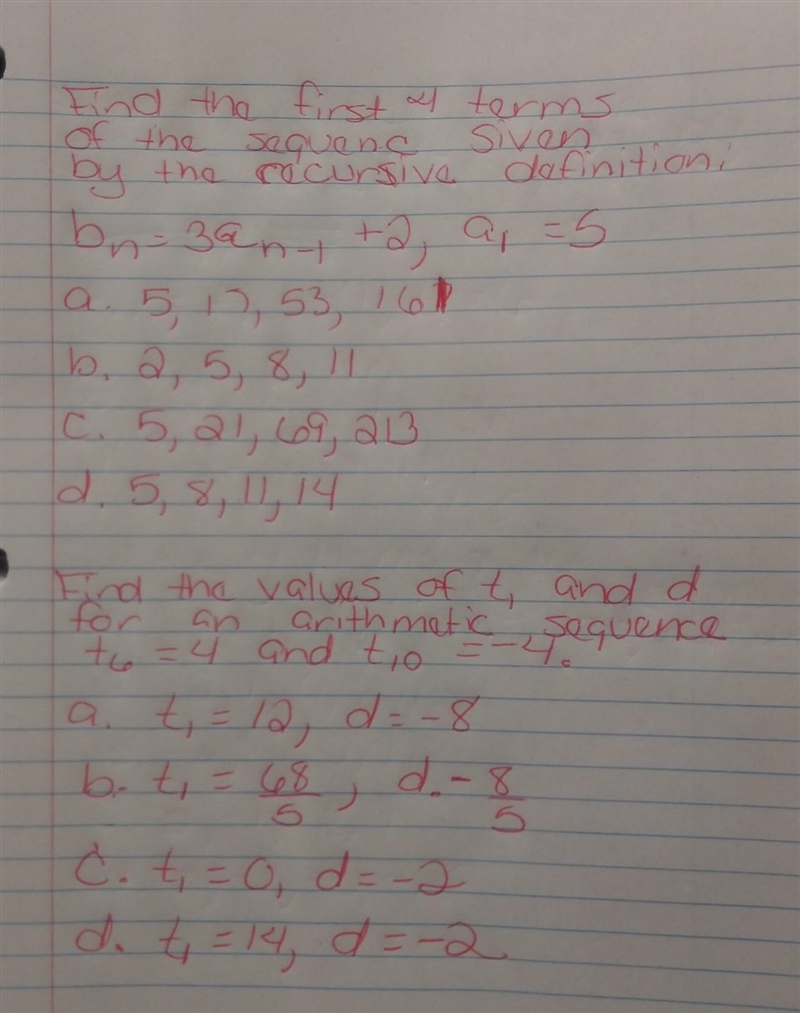 Find the first 4 terms
of the sequenc given
by the recursive definition:
bn = 3an-1 + 2, a1 = 5
a. 5, 17, 53, 161
b. 2, 5, 8, 11
c. 5, 21, 69, 213
d. 5, 8, 11, 14
Find the values of t1 and d
for an arithmatic sequence
t6 = 4 and t10 = -4.
a. t1 = 12, d = -8
b. t1 = 68/5, d. - 8/5
c. t1 = 0, d = -2
d. t1 = 14, d = -2